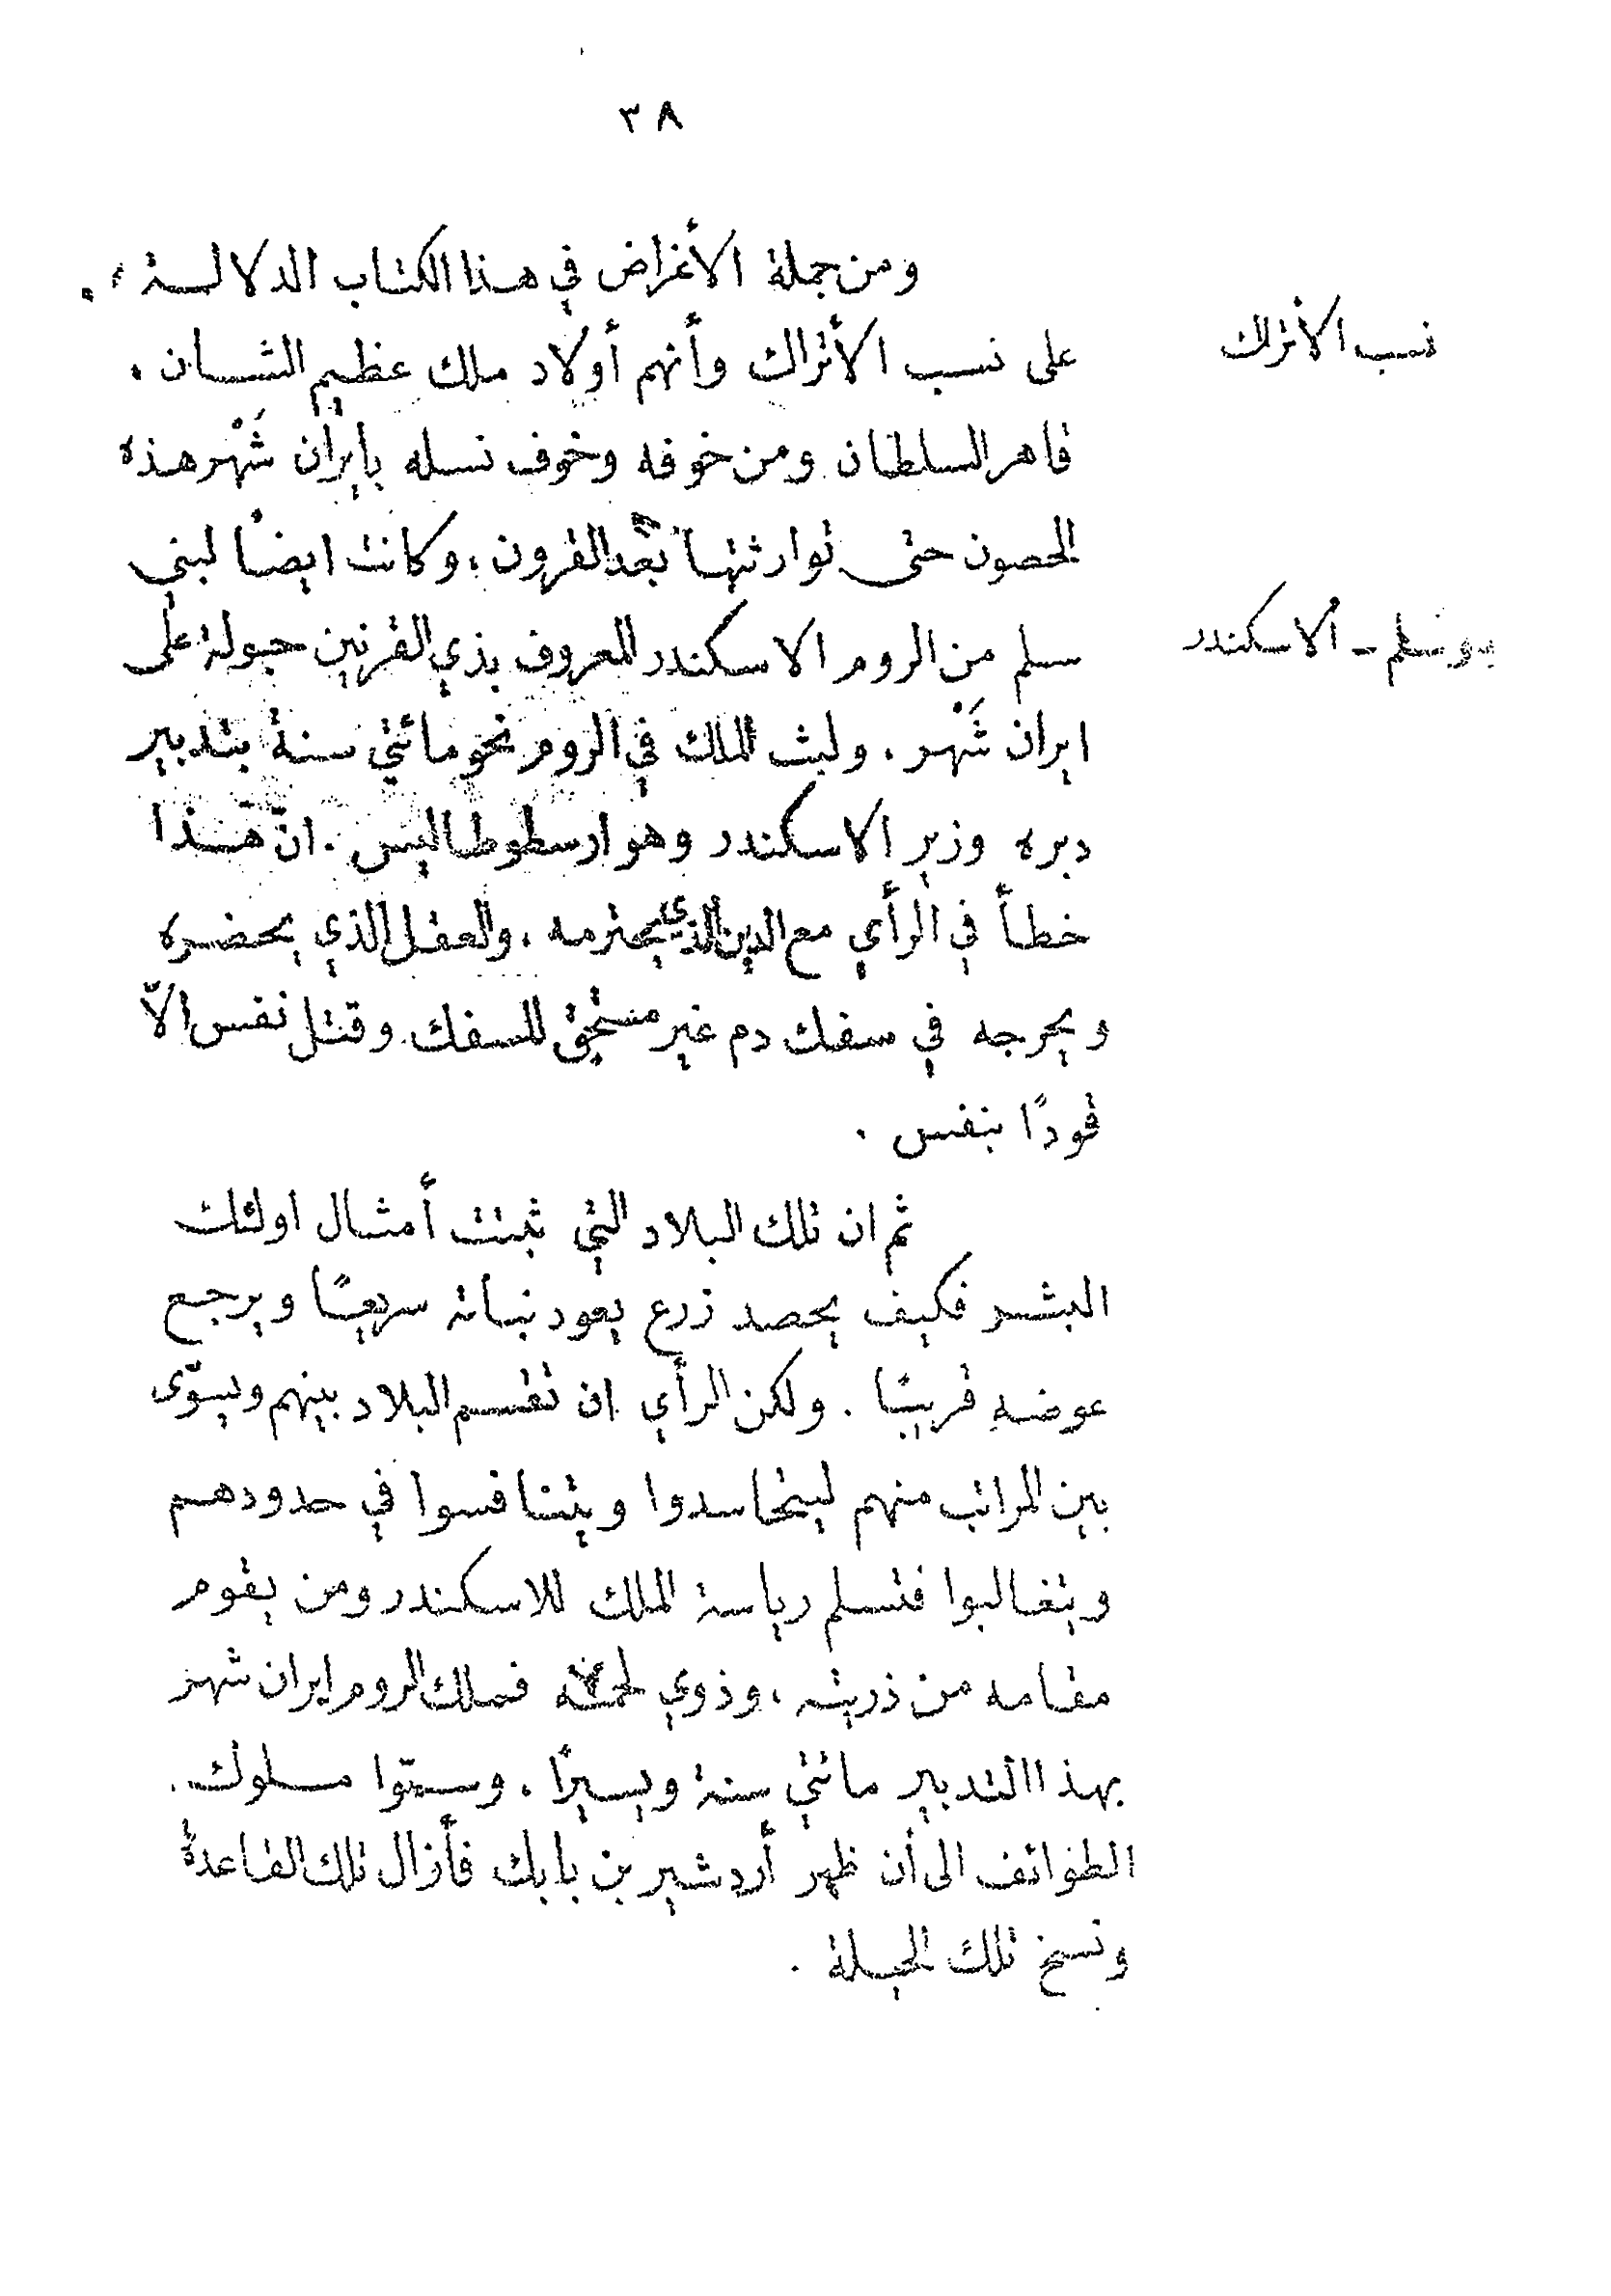 ٣٨
ومن جملة الأغراض في هذا الكتاب الدلالة
نسب الأتراك
على نسب الأتراك وأنهم أولاد ملك عظيم الشان .
قاهر السلطان ومن خوفه وخوف نسله بايران شَهْر هذه
الحصون حتى توارثتها بعد القرون ، وكانت ايضًا لبني
بنو سلم - الاسكندر
سلم من الروم الاسكندر المعروف بذي القرنين جولة على
ايران شَهْر . ولبث الملك في الروم نحو مائتي سنة بتدبير
دبره وزير الاسكندر وهو ارسطوطاليس . انّ هذا
خطأ في الرأي مع الدين الذي يحترمه ، والعقل الذي يحضره
ويحرجه في سفك دم غير مستحق للسفك وقتل نفس الاّ
قودًا بنفس .
ثم ان تلك البلاد التي ثبتت أمثال اولئك
البشر فكيف يحصد زرع يعود نباته سريعًا ويرجع
عوضه قريبًا . ولكن الرأي ان تقسم البلاد بينهم ويسوّى
بين المراتب منهم ليتحاسدوا ويتنافسوا في حدودهم
ويتغالبوا فتسلم رياسة الملك للاسكندر ومن يقوم
مقامه من ذريته ، وذوي لحمته فملك الروم ايران شهر
بهذا التدبير مائتي سنة ويسيرًا . وسمّوا ملوك .
الطوائف الى أن ظهر أردشير بن بابك فأزال تلك القاعدة
ونسخ تلك الحيلة .